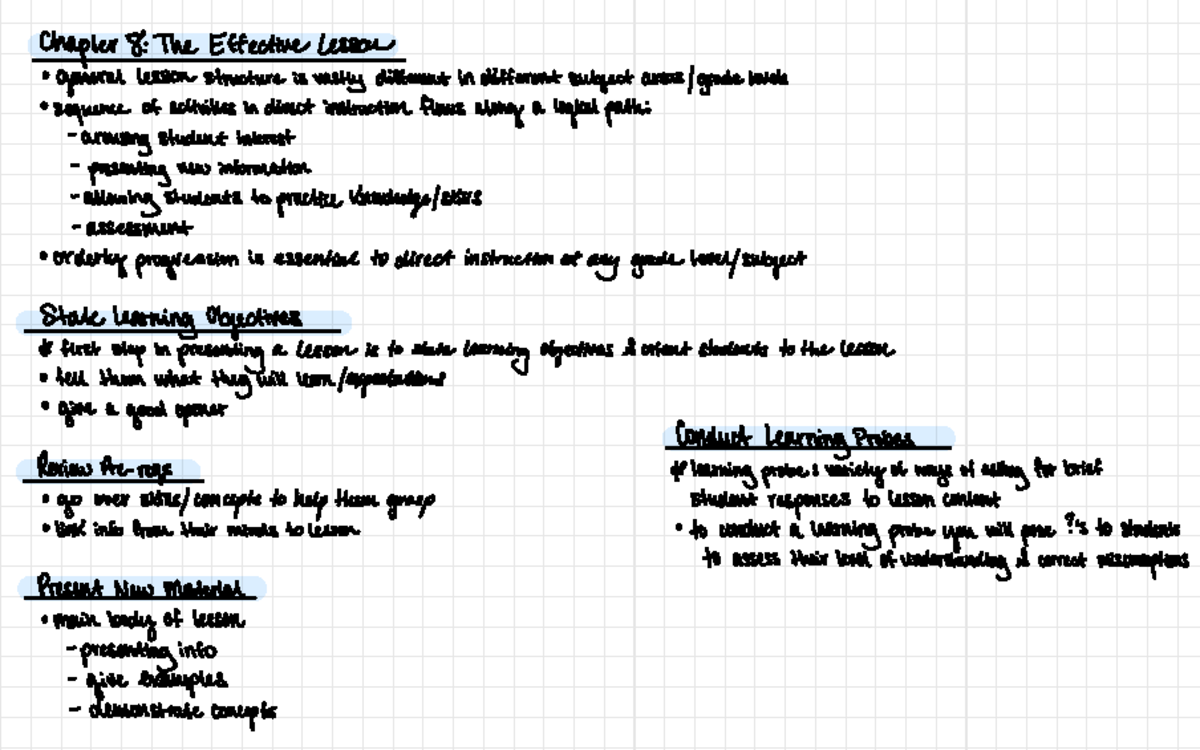 Chapter 8: The Effective Lesson
• general lesson structure is vastly different in different subject areas/grade levels
• sequence of activities in direct instruction flows along a logical path:
- arousing student interest
- presenting new information
- allowing students to practice knowledge/skills
- assessment
• orderly progression is essential to direct instruction at any grade level/subject
State Learning Objectives
* first step in presenting a lesson is to state learning objectives & orient students to the lesson
• tell them what they will learn/expectations
• give a good opener
Review Pre-reqs
• go over skills/concepts to help them grasp
• link info from their minds to lesson
Present New Material
• main body of lesson
- presenting info
- give examples
- demonstrate concepts
Conduct Learning Probes
* learning probe: variety of ways of asking for brief
student responses to lesson content
• to conduct a learning probe you will pose ?'s to students
to assess their level of understanding & correct misconceptions